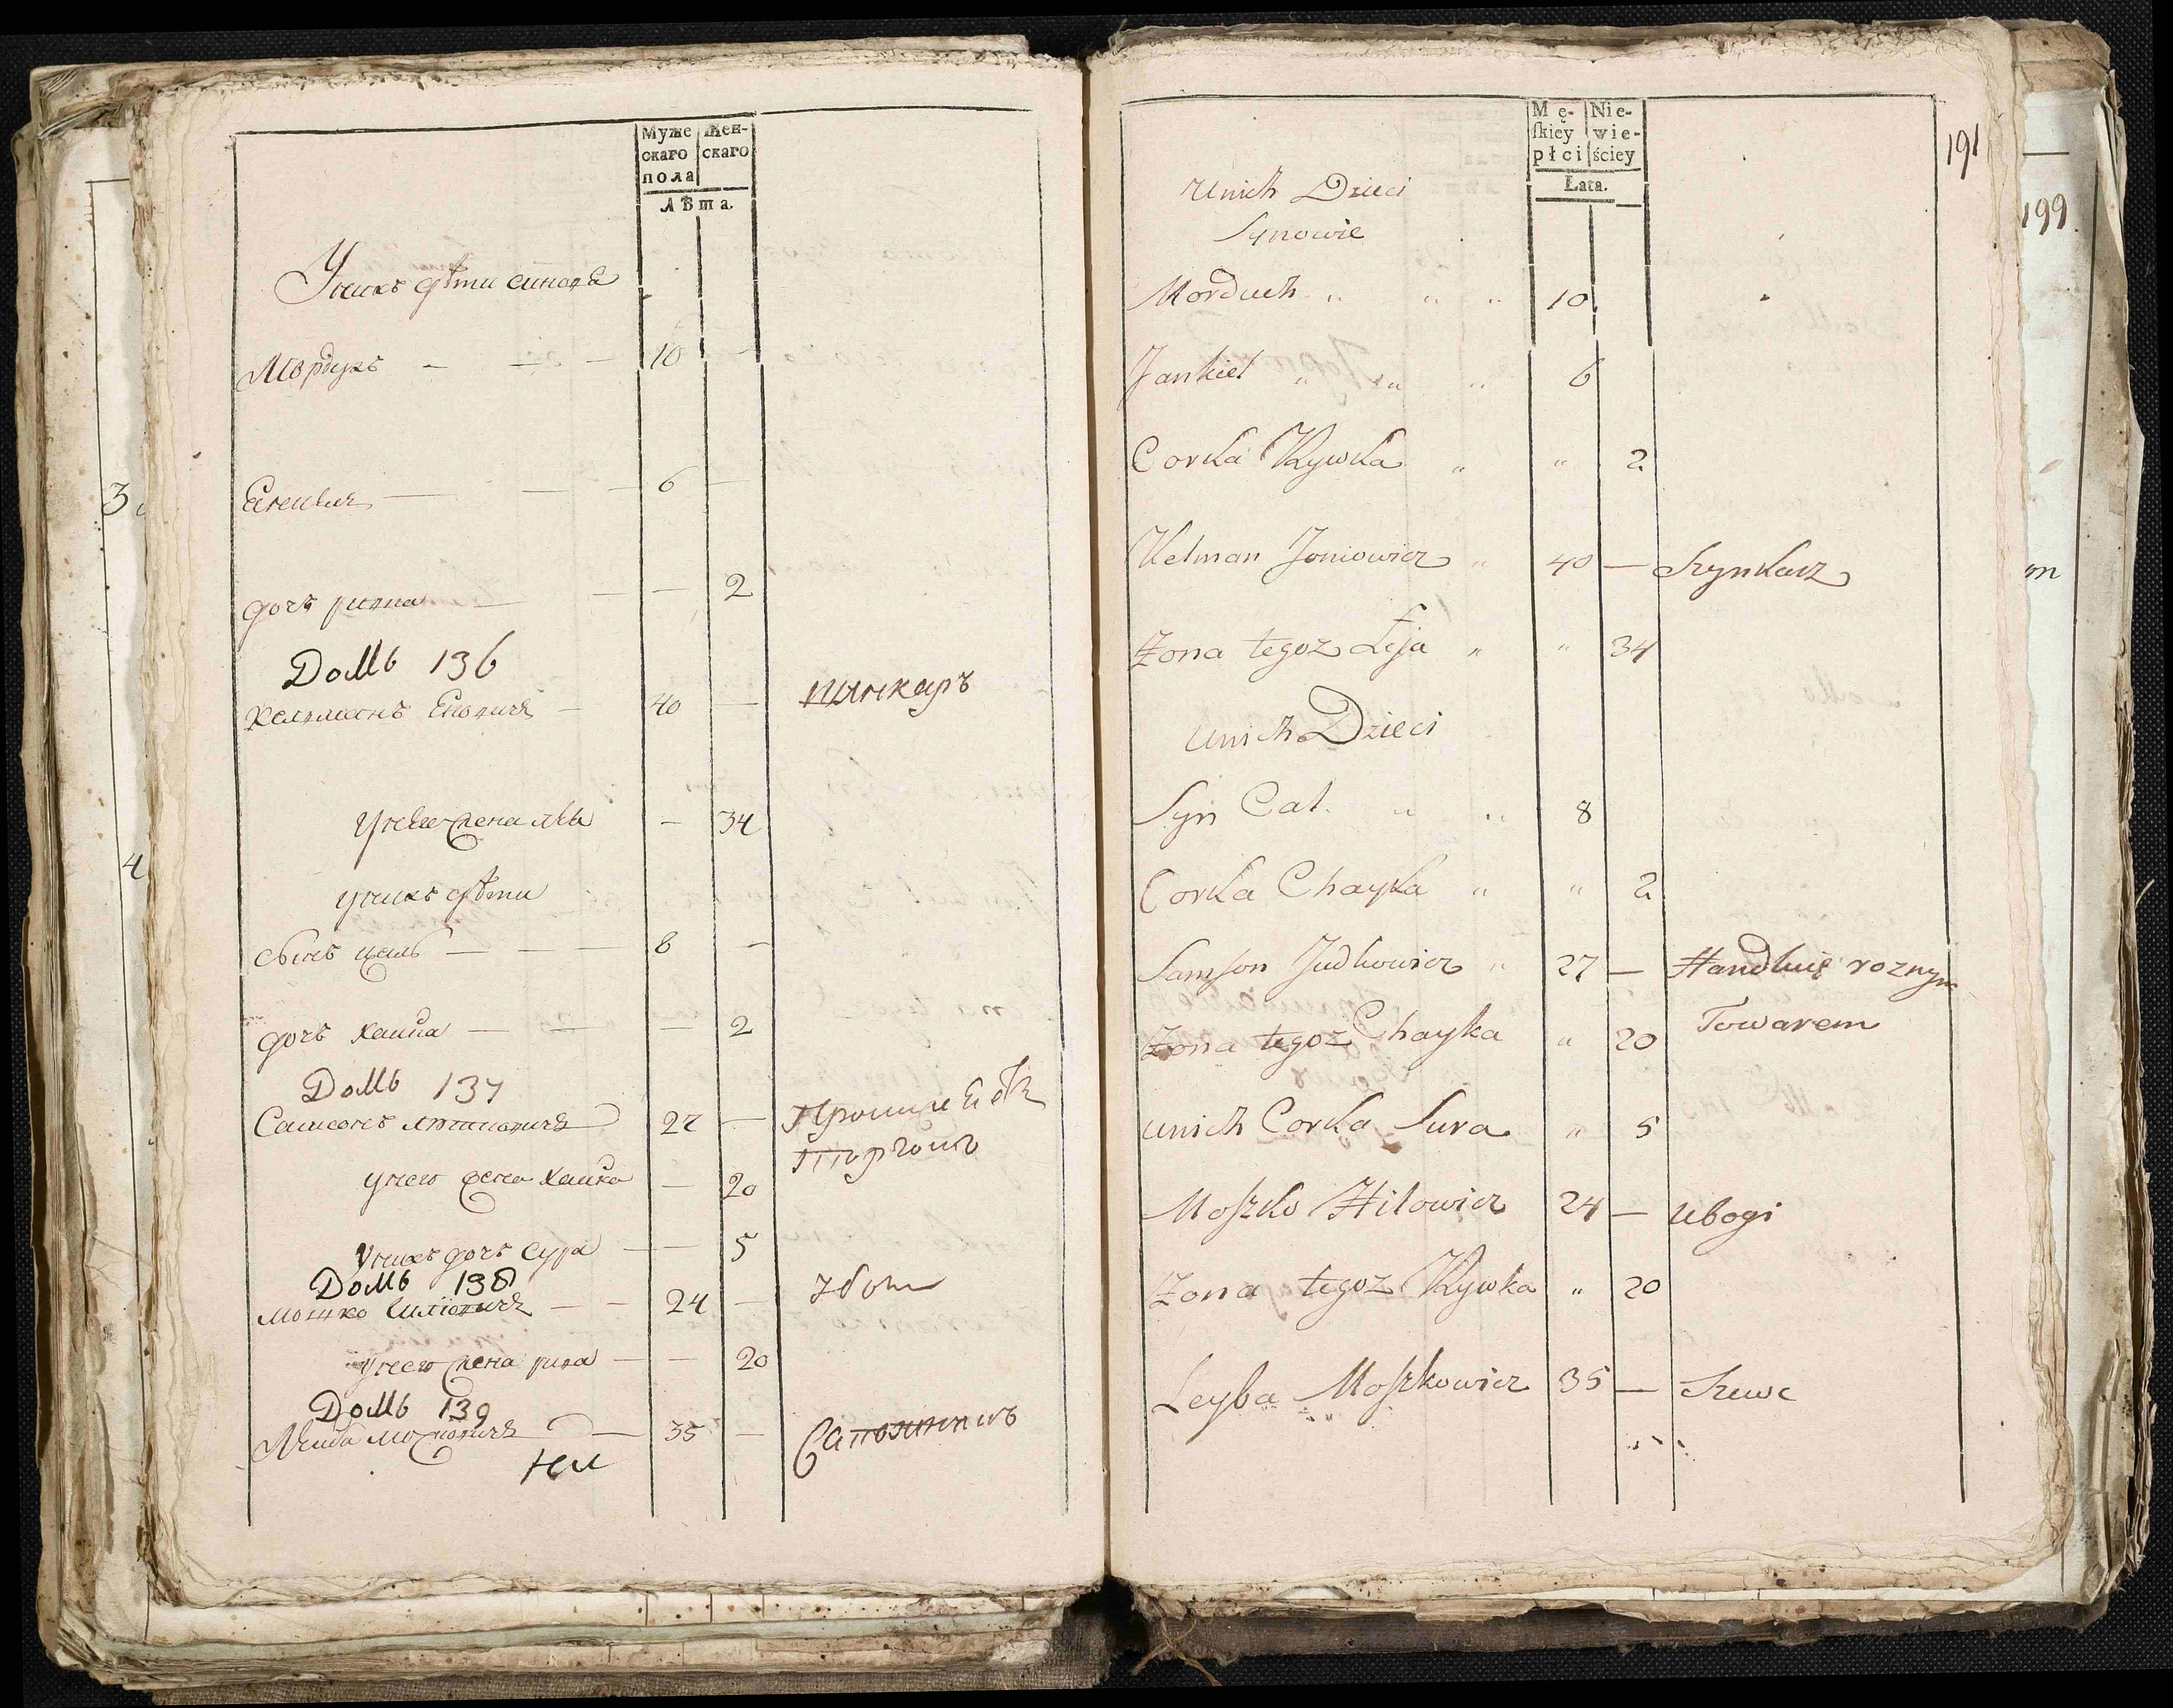 Муже Жен-
скаго скаго
пола
Лѣта.
Унихъ дѣти синовѣ
Мордухъ — — — 10 —
Енкиль — — — 6 —
дочъ ривка — — — 2
Домъ 136
Келманъ Еновичъ — 40 — шинкаръ
унево жена лѣя — 34
унихъ дѣти
сынъ цаль — — — 8 —
дочъ хайка — — — 2
Домъ 137
Самсонъ 27 —
торгомъ
унего жена хайка — 20
Унихъ дочъ сура — — 5
Домъ 138
мошко Гиліовичъ — — 24 — убоги
унего жена рива — — 20
Домъ 139
Лейба мошковичъ — 35 — Сапожникъ
191
Mę- Nie-
skiey wie-
płci ściey
Łata.
Unich Dzieci
Synowie
Morduch „ „ „ 10
Jankiel „ „ „ 6
Corka Rywka „ „ 2
Kelman Joniowicz „ 40 — Szynkarz
Zona tegoz Leja „ „ 34
Unich Dzieci
Syn Cal. „ „ 8
Corka Chayka „ „ 2
Samson Judkowicz „ 27 — Handluię roznym
Towarem
Zona tegoz Chayka „ 20
unich Corka Sura „ 5
Moszko Hilowicz 24 — Ubogi
Zona tegoz Rywka „ 20
Leyba Moszkowicz 35 — Szewc
199
3
4